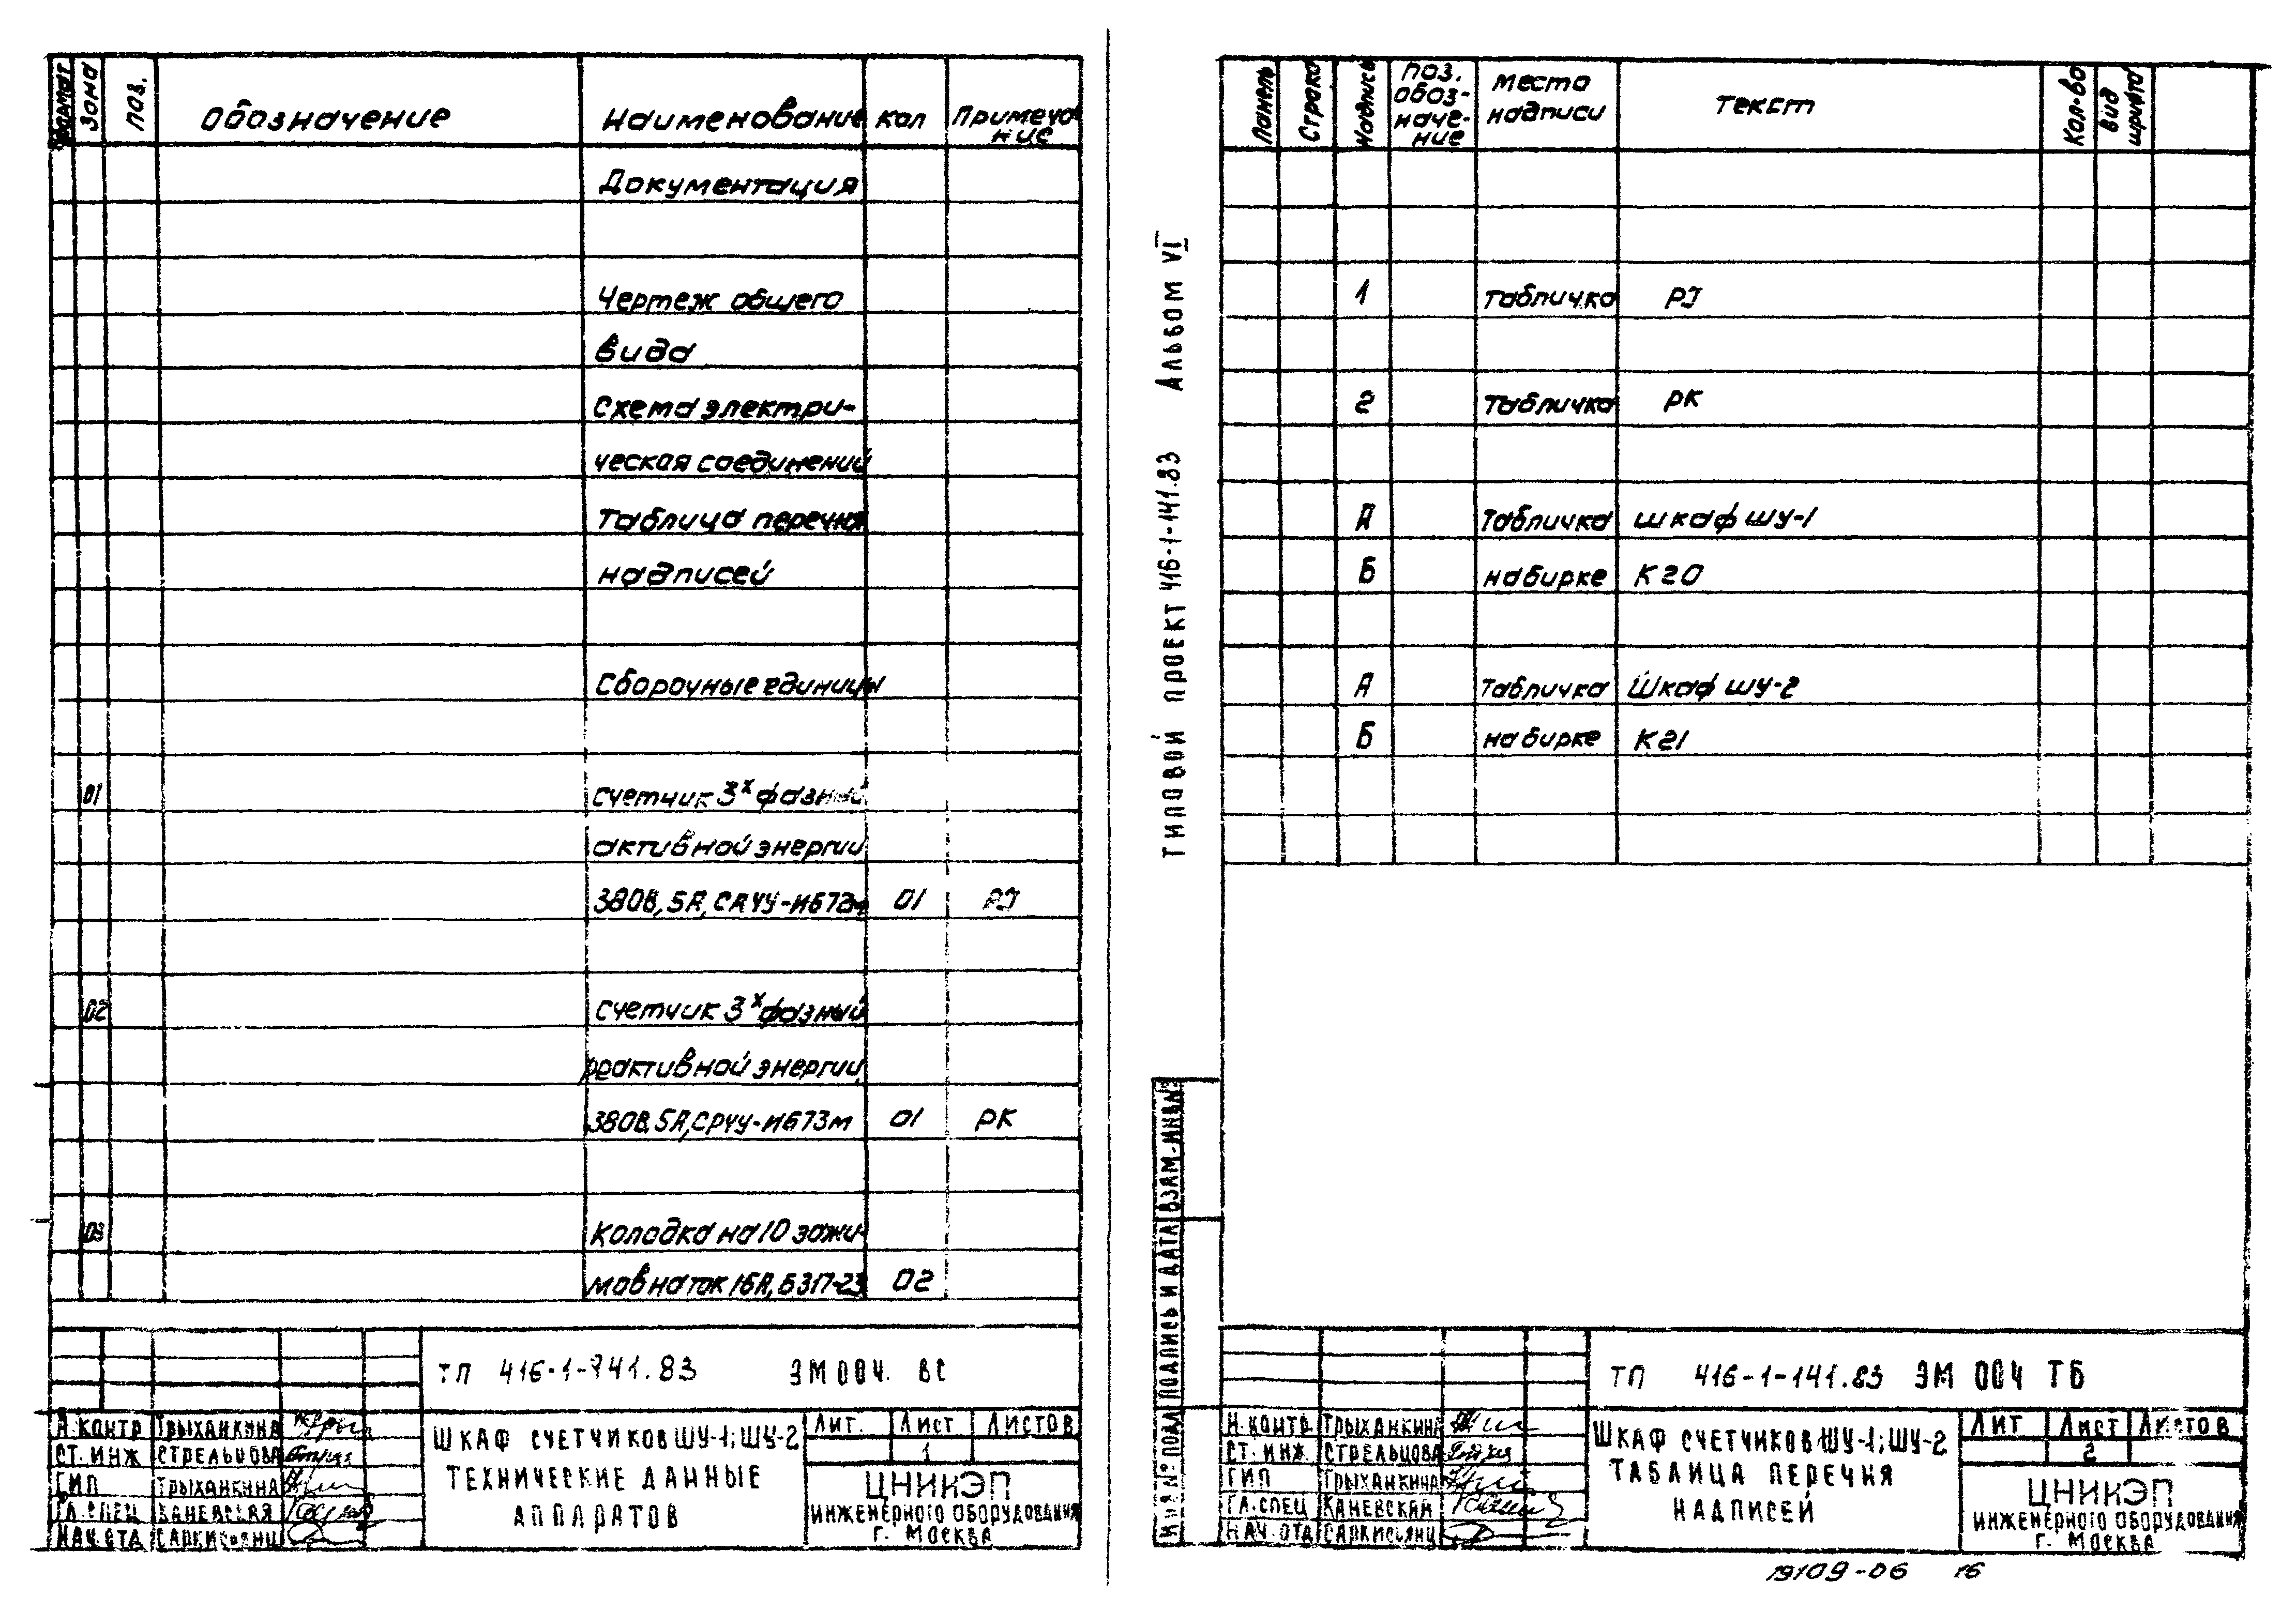 Формат Зона Поз. Обозначение Наименование Кол Примеча
ние
Документация
Чертеж общего
вида
Схема электри-
ческая соединений
Таблица перечня
надписей
Сборочные единицы
01 Счетчик 3х фазный
активной энергии
380В, 5А, САЧУ-И672м 01 PJ
02 Счетчик 3х фазный
реактивной энергии
380В, 5А, СРЧУ-И673м 01 РК
03 Колодка на 10 зажи-
мов на ток 16А, БЗП-23 02
ТП 416-1-141.83 ЭМ 004. ВС
Н.контр Трыханкина
Ст. инж Стрельцова
ГИП Трыханкина
Гл. спец Каневская
Нач. отд Саркисьянц
Шкаф счетчиков ШУ-1; ШУ-2
Технические данные
аппаратов
Лит. Лист Листов
1
ЦНИКЭП
инженерного оборудования
г. Москва
Типовой проект 416-1-141.83 Альбом VI
Панель Строка Надпись Поз.
обоз-
наче-
ние
Место
надписи
Текст Кол-во Вид
шрифта
1 Табличка PJ
2 Табличка РК
А Табличка шкаф ШУ-1
Б на бирке К20
А Табличка Шкаф ШУ-2
Б на бирке К21
Инв № подл Подпись и дата Взам. инв №
ТП 416-1-141.83 ЭМ 004 ТБ
Н.контр. Трыханкина
Ст. инж Стрельцова
ГИП Трыханкина
Гл. спец Каневская
Нач. отд Саркисьянц
Шкаф счетчиков ШУ-1; ШУ-2
Таблица перечня
надписей
Лит Лист Листов
2
ЦНИКЭП
инженерного оборудования
г. Москва
19109-06 16